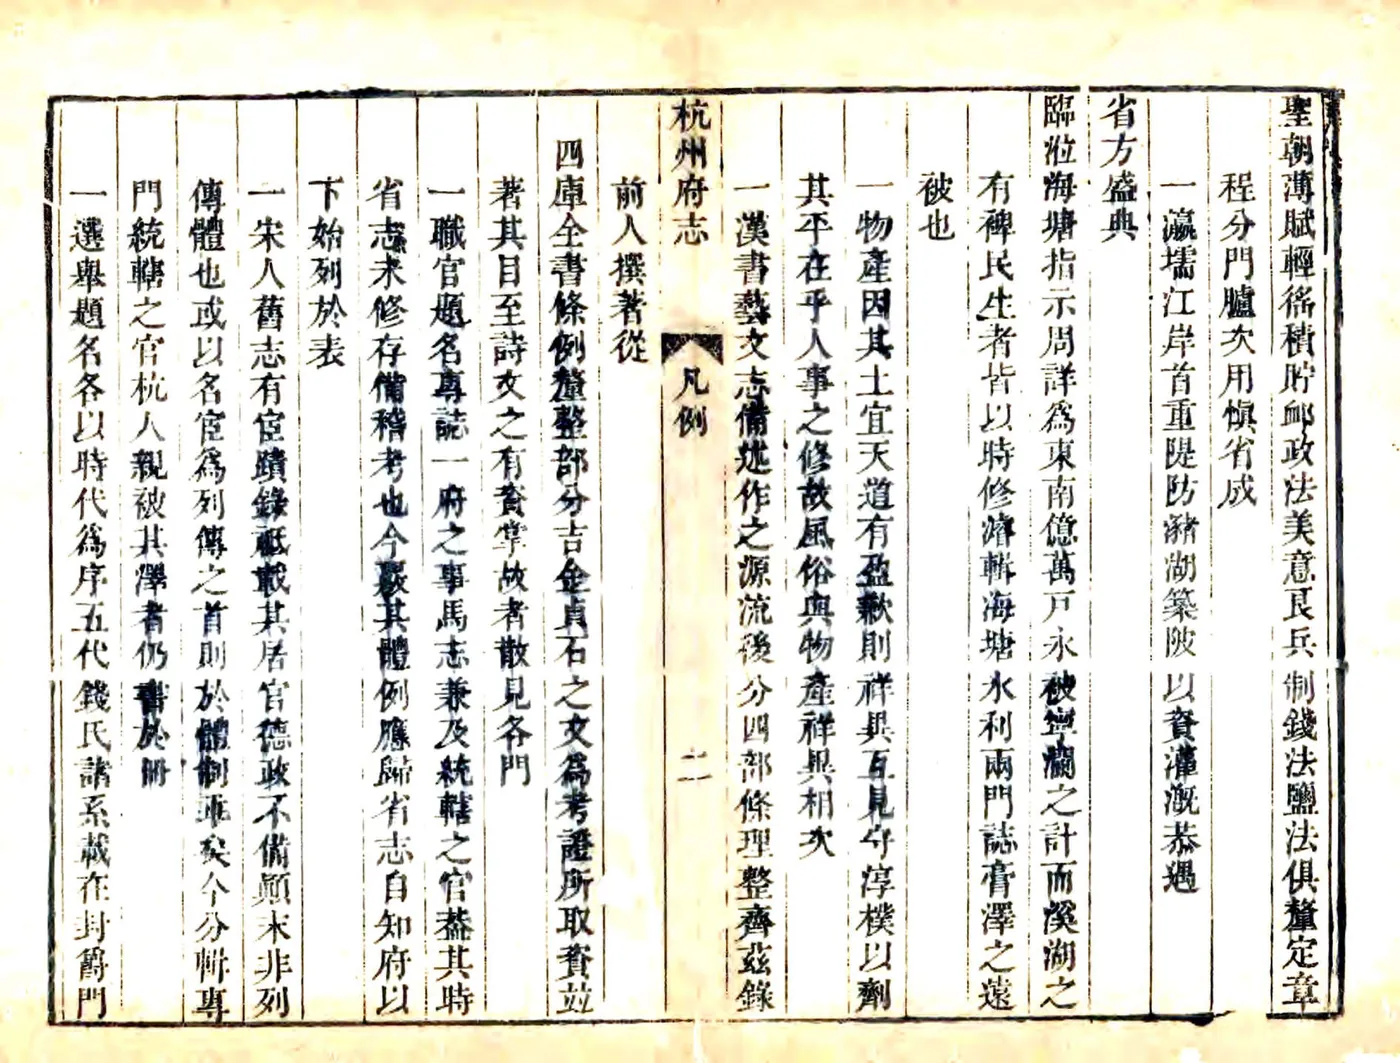 聖朝薄賦輕徭積貯卹政法美意良兵制錢法鹽法俱釐定章
程分門臚次用愼省成
一瀛壖江岸首重隄防瀦湖築陂以資灌漑恭遇
省方盛典
臨涖海塘指示周詳為東南億萬戸永被寧瀾之計而溪湖之
有裨民生者皆以時修濬輯海塘水利兩門誌膏澤之遠
被也
一物產因其土宜天道有盈歉則祥異互見守淳樸以劑
其平在乎人事之修故風俗與物產祥異相次
一漢書藝文志備述作之源流後分四部條理整齊茲錄
杭州府志 凡例 二
前人撰著從
四庫全書條例釐整部分吉金貞石之文為考證所取資並
著其目至詩文之有資掌故者散見各門
一職官題名專誌一府之事馬志兼及統轄之官葢其時
省志未修存備稽考也今嚴其體例應歸省志自知府以
下始列於表
一宋人舊志有宦蹟錄祗載其居官德政不備顚末非列
傳體也或以名宦為列傳之首則於體制乖矣今分輯專
門統轄之官杭人親被其澤者仍書於冊
一選舉題名各以時代為序五代錢氏諸系載在封爵門